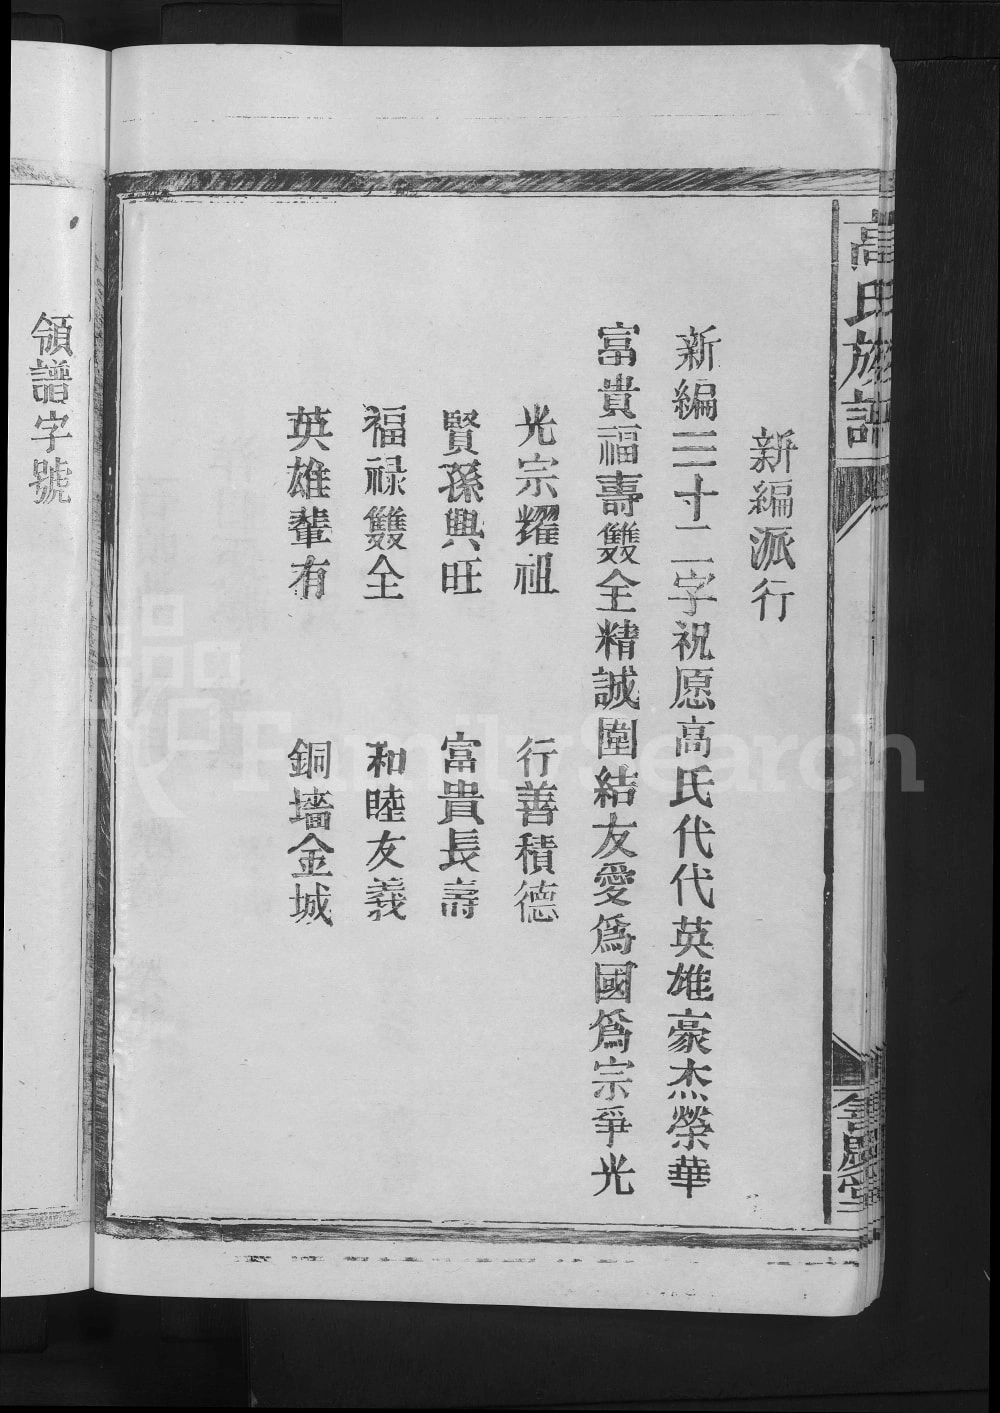 高氏族譜
新編派行
新編三十二字祝愿高氏代代英雄豪杰榮華
富貴福壽雙全精誠團結友愛爲國爲宗爭光
光宗耀祖 行善積德
賢孫興旺 富貴長壽
福禄雙全 和睦友義
英雄輩有 銅墻金城
領譜字號
FamilySearch